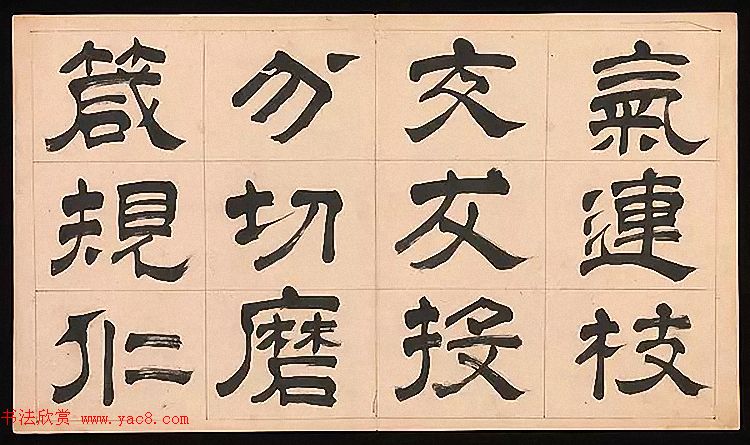 氣連枝
交友投
分切磨
箴規仁
书法欣赏 www.yac8.com